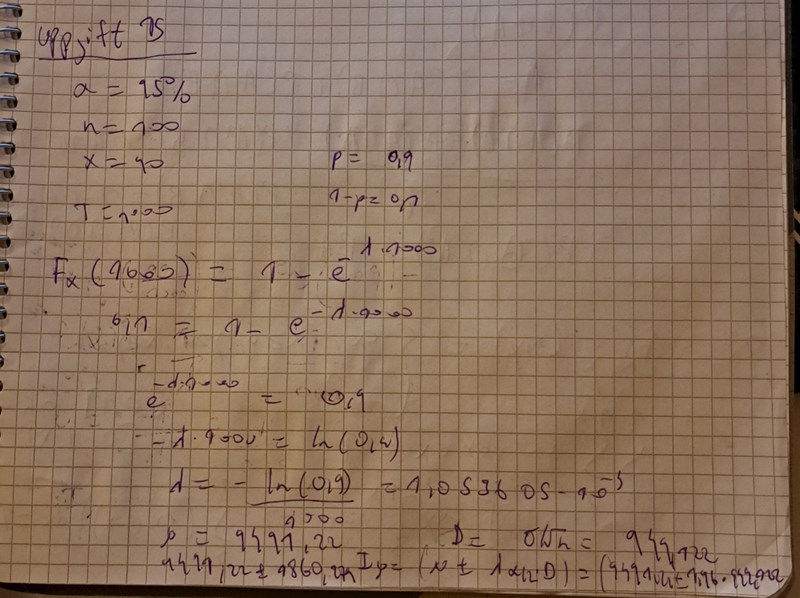 Uppgift 15
α = 95%
n = 100
x = 90
p = 0,9
1-p = 0,1
T = 1000
Fx (1000) = 1 - e^-λ·1000
0,1 = 1 - e^-λ·1000
e^-λ·1000 = 0,9
-λ·1000 = ln(0,9)
λ = - ln(0,9) / 1000 = 1,053605·10^-4
μ = 9491,22 D = σ/√n = 949,122
9491,22 ± 1860,24 Iμ = (μ ± λα/2 D) = (9491,22 ± 1,96·949,122